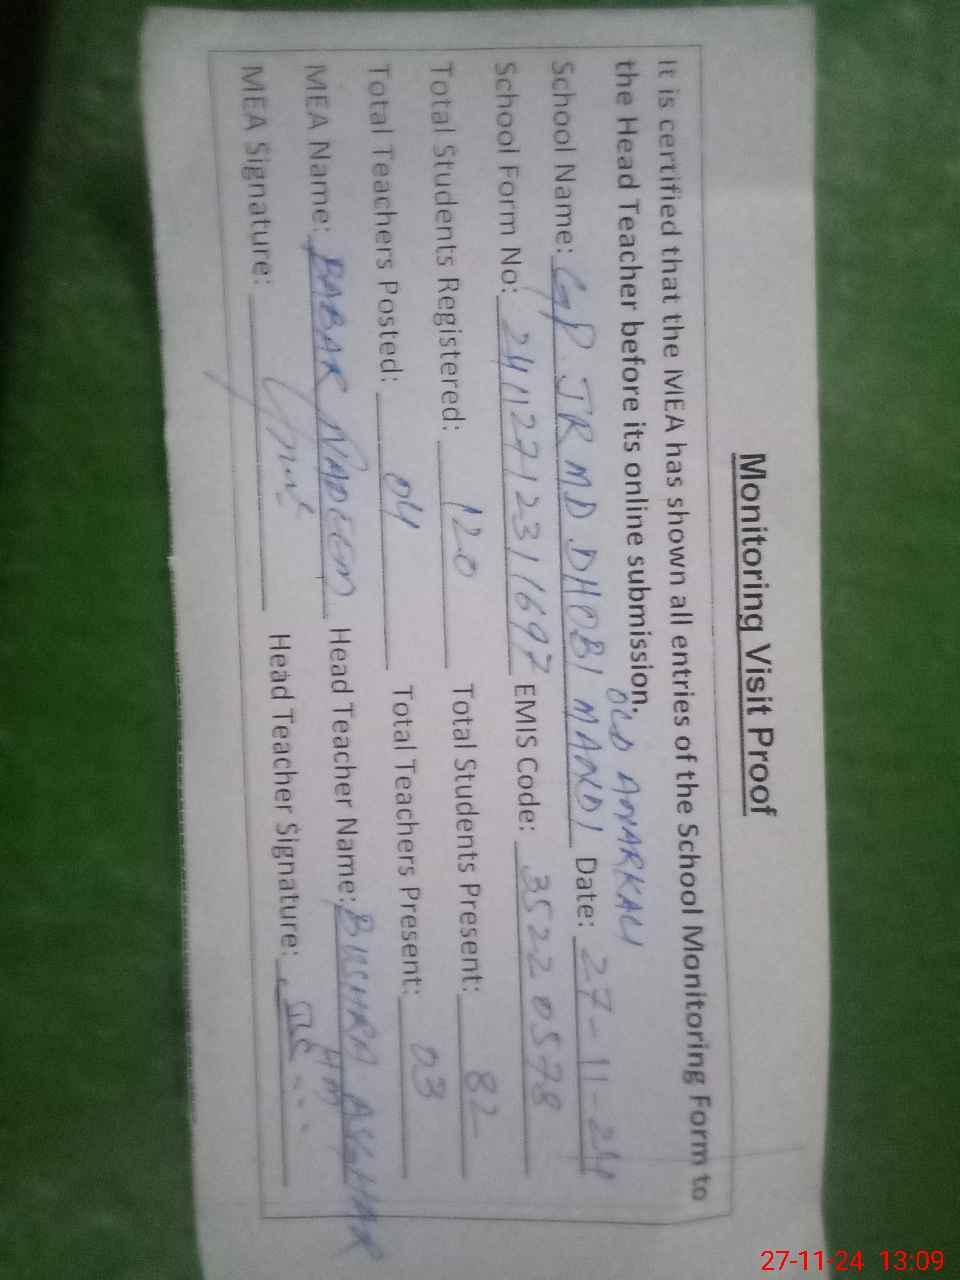 Monitoring Visit Proof
It is certified that the MEA has shown all entries of the School Monitoring Form to
the Head Teacher before its online submission.
OLD ANARKALI
School Name: GP JR MD DHOBI MANDI Date: 27-11-24
School Form No: 24112712311697 EMIS Code: 35220578
Total Students Registered: 120 Total Students Present: 82
Total Teachers Posted: 04 Total Teachers Present: 03
MEA Name: BABAR NADEEM Head Teacher Name: BUSHRA ASGHAR
MEA Signature: Head Teacher Signature:
27-11-24 13:09